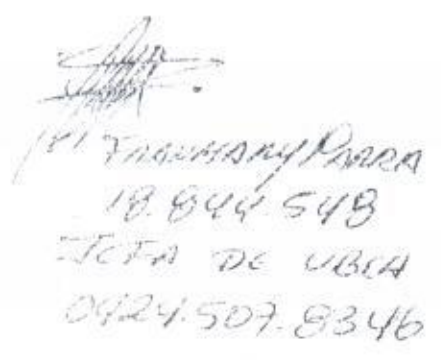 Franmary Parra
18.844.548
JEFA DE UBCH
0424.507.8346